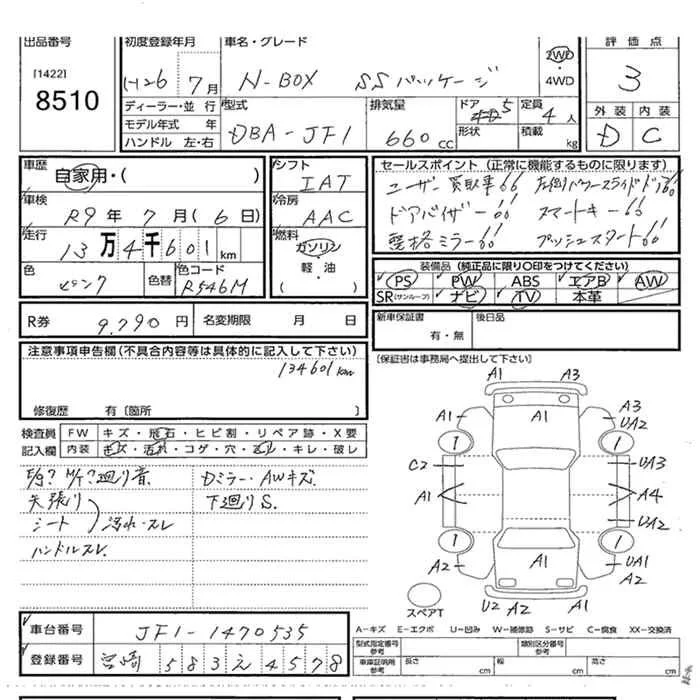 出品番号
[1422]
8510
初度登録年月
H26 7月
車名・グレード
N-BOX SSパッケージ
2WD
・
4WD
評価点
3
外装 内装
D C
ディーラー・並行
モデル年式 年
ハンドル 左・右
型式
DBA-JF1
排気量
660cc
ドア 5
形状
定員
4人
積載 kg
車歴
自家用・( )
車検
R9年 7月(6日)
走行
13万4千601km
色
ピンク
色替
色コード
R546M
シフト
IAT
冷房
AAC
燃料
ガソリン
・
軽・油
( )
セールスポイント(正常に機能するものに限ります)
ユーザー買取車!! 左側パワースライドドア!!
ドアバイザー!! スマートキー!!
電格ミラー!! プッシュスタート!!
装備品(純正品に限り○印をつけてください)
PS PW ABS エアB AW
SR(サンルーフ) ナビ TV 本革
R券 9,790円 名変期限 月 日
新車保証書
有・無
後日品
注意事項申告欄(不具合内容等は具体的に記入して下さい)
134601km
修復歴 有〔箇所 〕
[保証書は事務局へ提出して下さい]
検査員
記入欄
FW キズ・飛石・ヒビ割・リペア跡・X要
内装 キズ・汚れ・コゲ・穴・スレ・キレ・破レ
廻り音. Dミラー・AWキズ.
天張り 下廻りS.
シート 汚れ・スレ
ハンドルスレ.
A1 A3
A1 A1 A3
UA2
1 1
C2 UA3
A1 A4
UA2
1 1
A2 A1 UA1
A2
スペアT
U2 A2 A1
A-キズ E-エクボ U-凹み W-補修跡 S-サビ C-腐食 XX-交換済
車台番号 JF1-1470535
登録番号 宮崎 583 え 4578
型式指定番号
参考
類別区分番号
参考
車庫証明用
参考
長さ cm 幅 cm 高さ cm